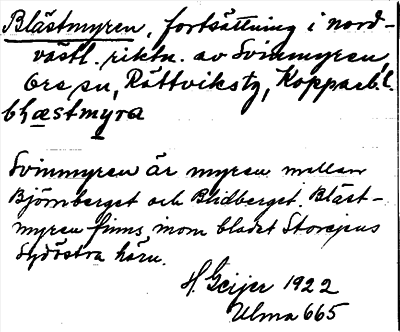 Blästmyren, fortsättning i nord-
västl. riktn. av Svinmyren,
Ore sn, Rättvikstg, Kopparb. l.
blæstmyra
Svinmyren är myren mellan
Björnberget och Blidberget. Bläst-
myren finns inom bladet Storejens
sydöstra hörn.
H. Geijer 1922
Ulma 665